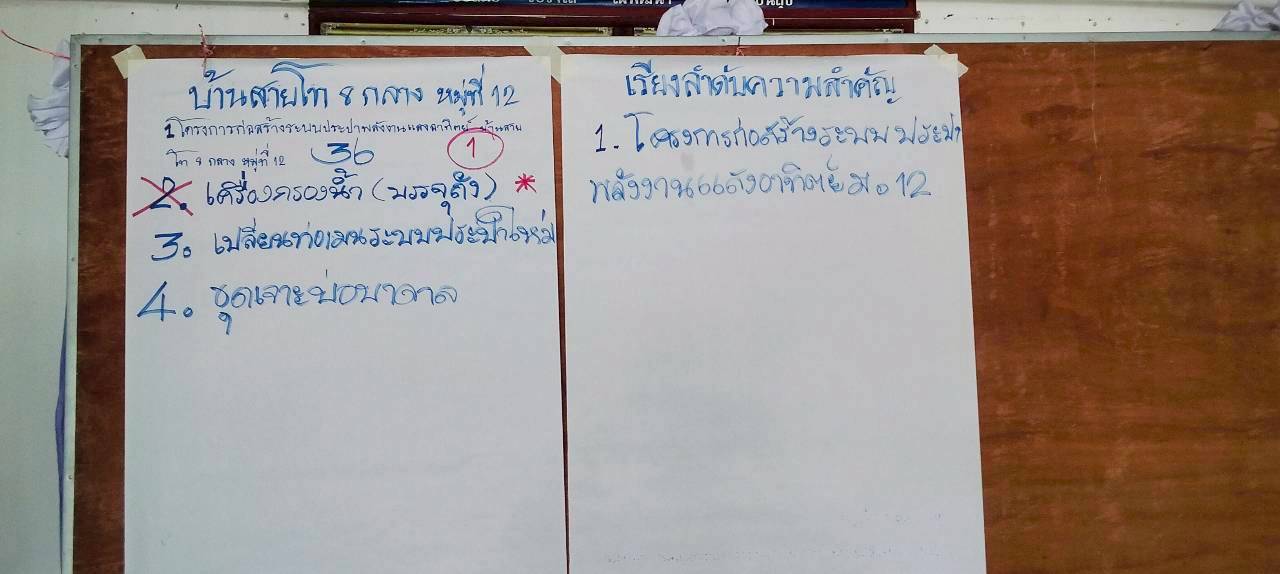 บ้านสายโท 8 กลาง หมู่ที่ 12
1 โครงการก่อสร้างระบบประปาพลังงานแสงอาทิตย์ บ้านสาย
โท 8 กลาง หมู่ที่ 12 36 1
2. เครื่องกรองน้ำ (บรรจุถัง) *
3. เปลี่ยนท่อเมนระบบประปาใหม่
4. ชุดเจาะบ่อบาดาล
เรียงลำดับความสำคัญ
1. โครงการก่อสร้างระบบประปา
พลังงานแสงอาทิตย์ ม. 12